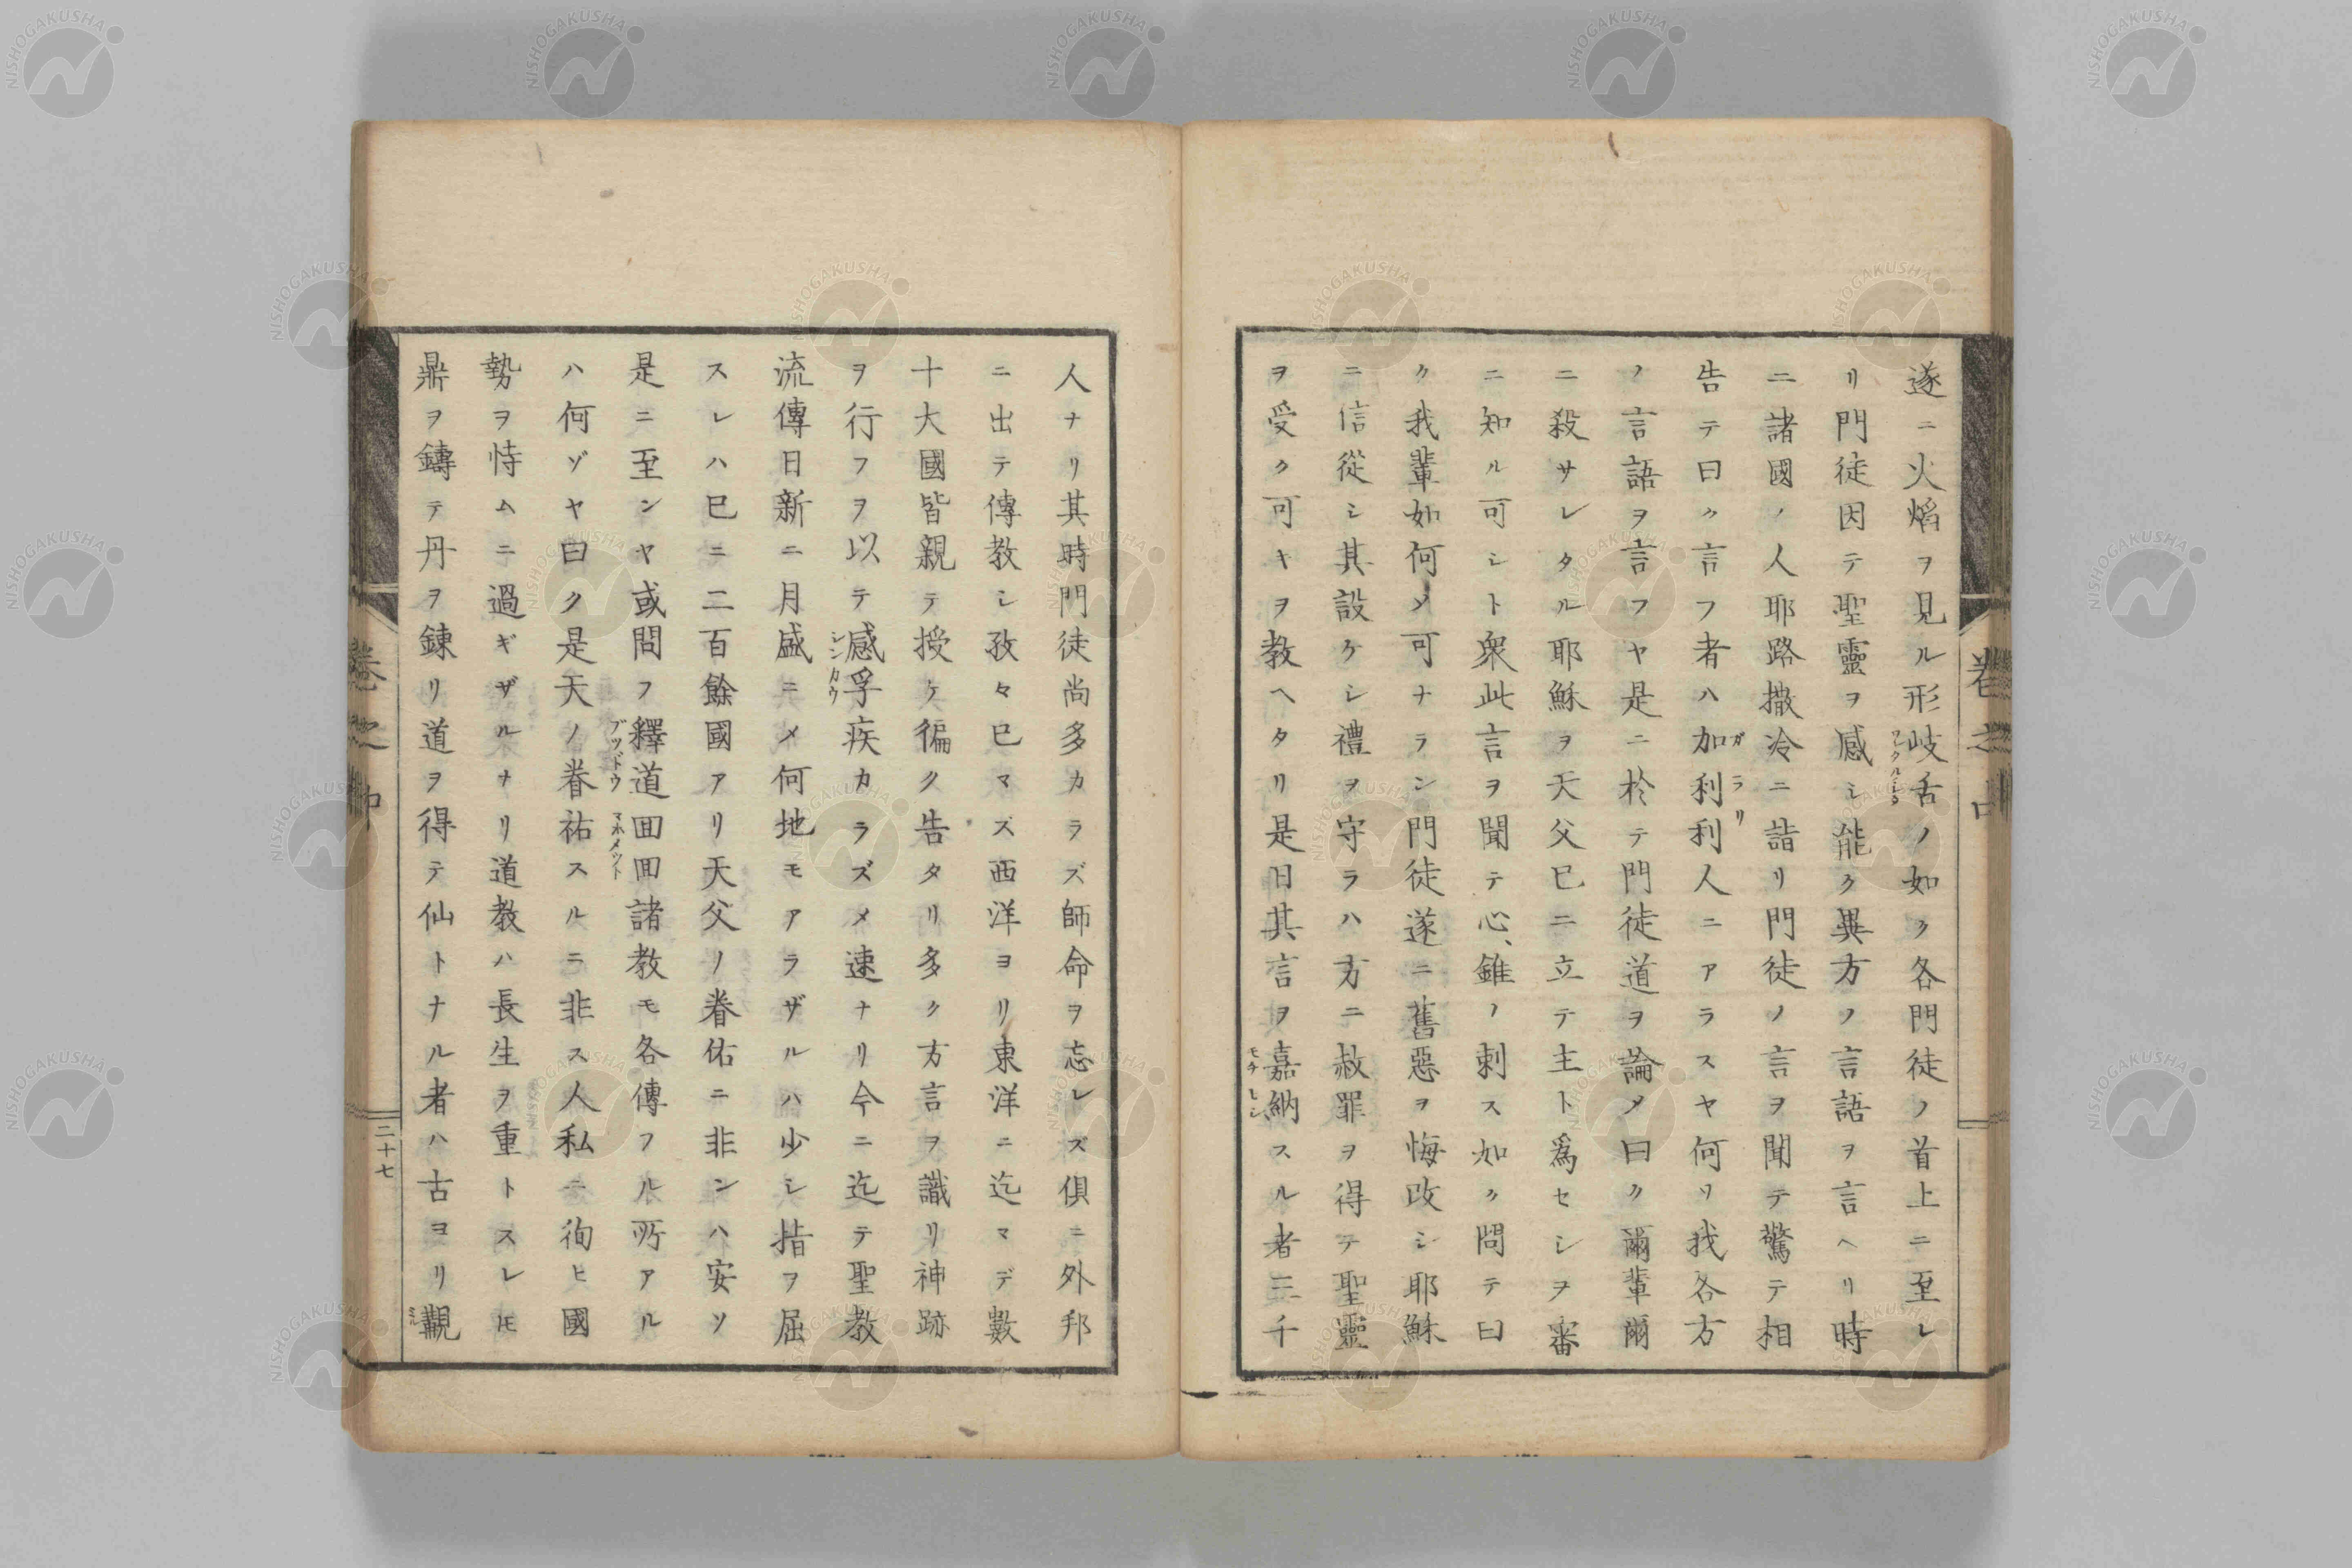 卷之中
遂ニ火焰ヲ見ル形岐舌ノ如ク各門徒ノ首上ニ至レ
リ門徒因テ聖靈ヲ感シ能ク異方ノ言語ヲ言ヘリ時
ニ諸國ノ人耶路撒冷ニ詣リ門徒ノ言ヲ聞テ驚テ相
告テ曰ク言フ者ハ加利利人ニアラスヤ何ソ我各方
ガラリ
ノ言語ヲ言フヤ是ニ於テ門徒道ヲ論メ曰ク爾輩爾
ニ殺サレタル耶穌ヲ天父已ニ立テ主ト爲セシヲ審
ニ知ル可シト衆此言ヲ聞テ心、錐ノ刺ス如ク問テ曰
ク我輩如何メ可ナラン門徒遂ニ舊惡ヲ悔改シ耶穌
ニ信從シ其設ケシ禮ヲ守ラハ方ニ赦罪ヲ得テ聖靈
ヲ受ク可キヲ教ヘタリ是日其言ヲ嘉納スル者三千
人ナリ其時門徒尚多カラズ師命ヲ忘レズ俱ニ外邦
ニ出テ傳教シ孜々已マズ西洋ヨリ東洋ニ迄マデ數
十大國皆親テ授ケ徧ク告タリ多ク方言ヲ識リ神跡
ヲ行フヲ以テ感孚疾カラズメ速ナリ今ニ迄テ聖教
シンカウ
流傳日新ニ月盛ニメ何地モアラザルハ少シ指ヲ屈
スレハ已ニ二百餘國アリ天父ノ眷佑ニ非ンハ安ソ
是ニ至ンヤ或問フ釋道回回諸教モ各傳フル所アル
ブツドウ マホメツト
ハ何ゾヤ曰ク是天ノ眷祐スルニ非ス人私ニ徇ヒ國
勢ヲ恃ムニ過ギザルナリ道教ハ長生ヲ重トスレ𪜈
鼎ヲ鑄テ丹ヲ鍊リ道ヲ得テ仙トナル者ハ古ヨリ觀
ミル
卷之中
二十七